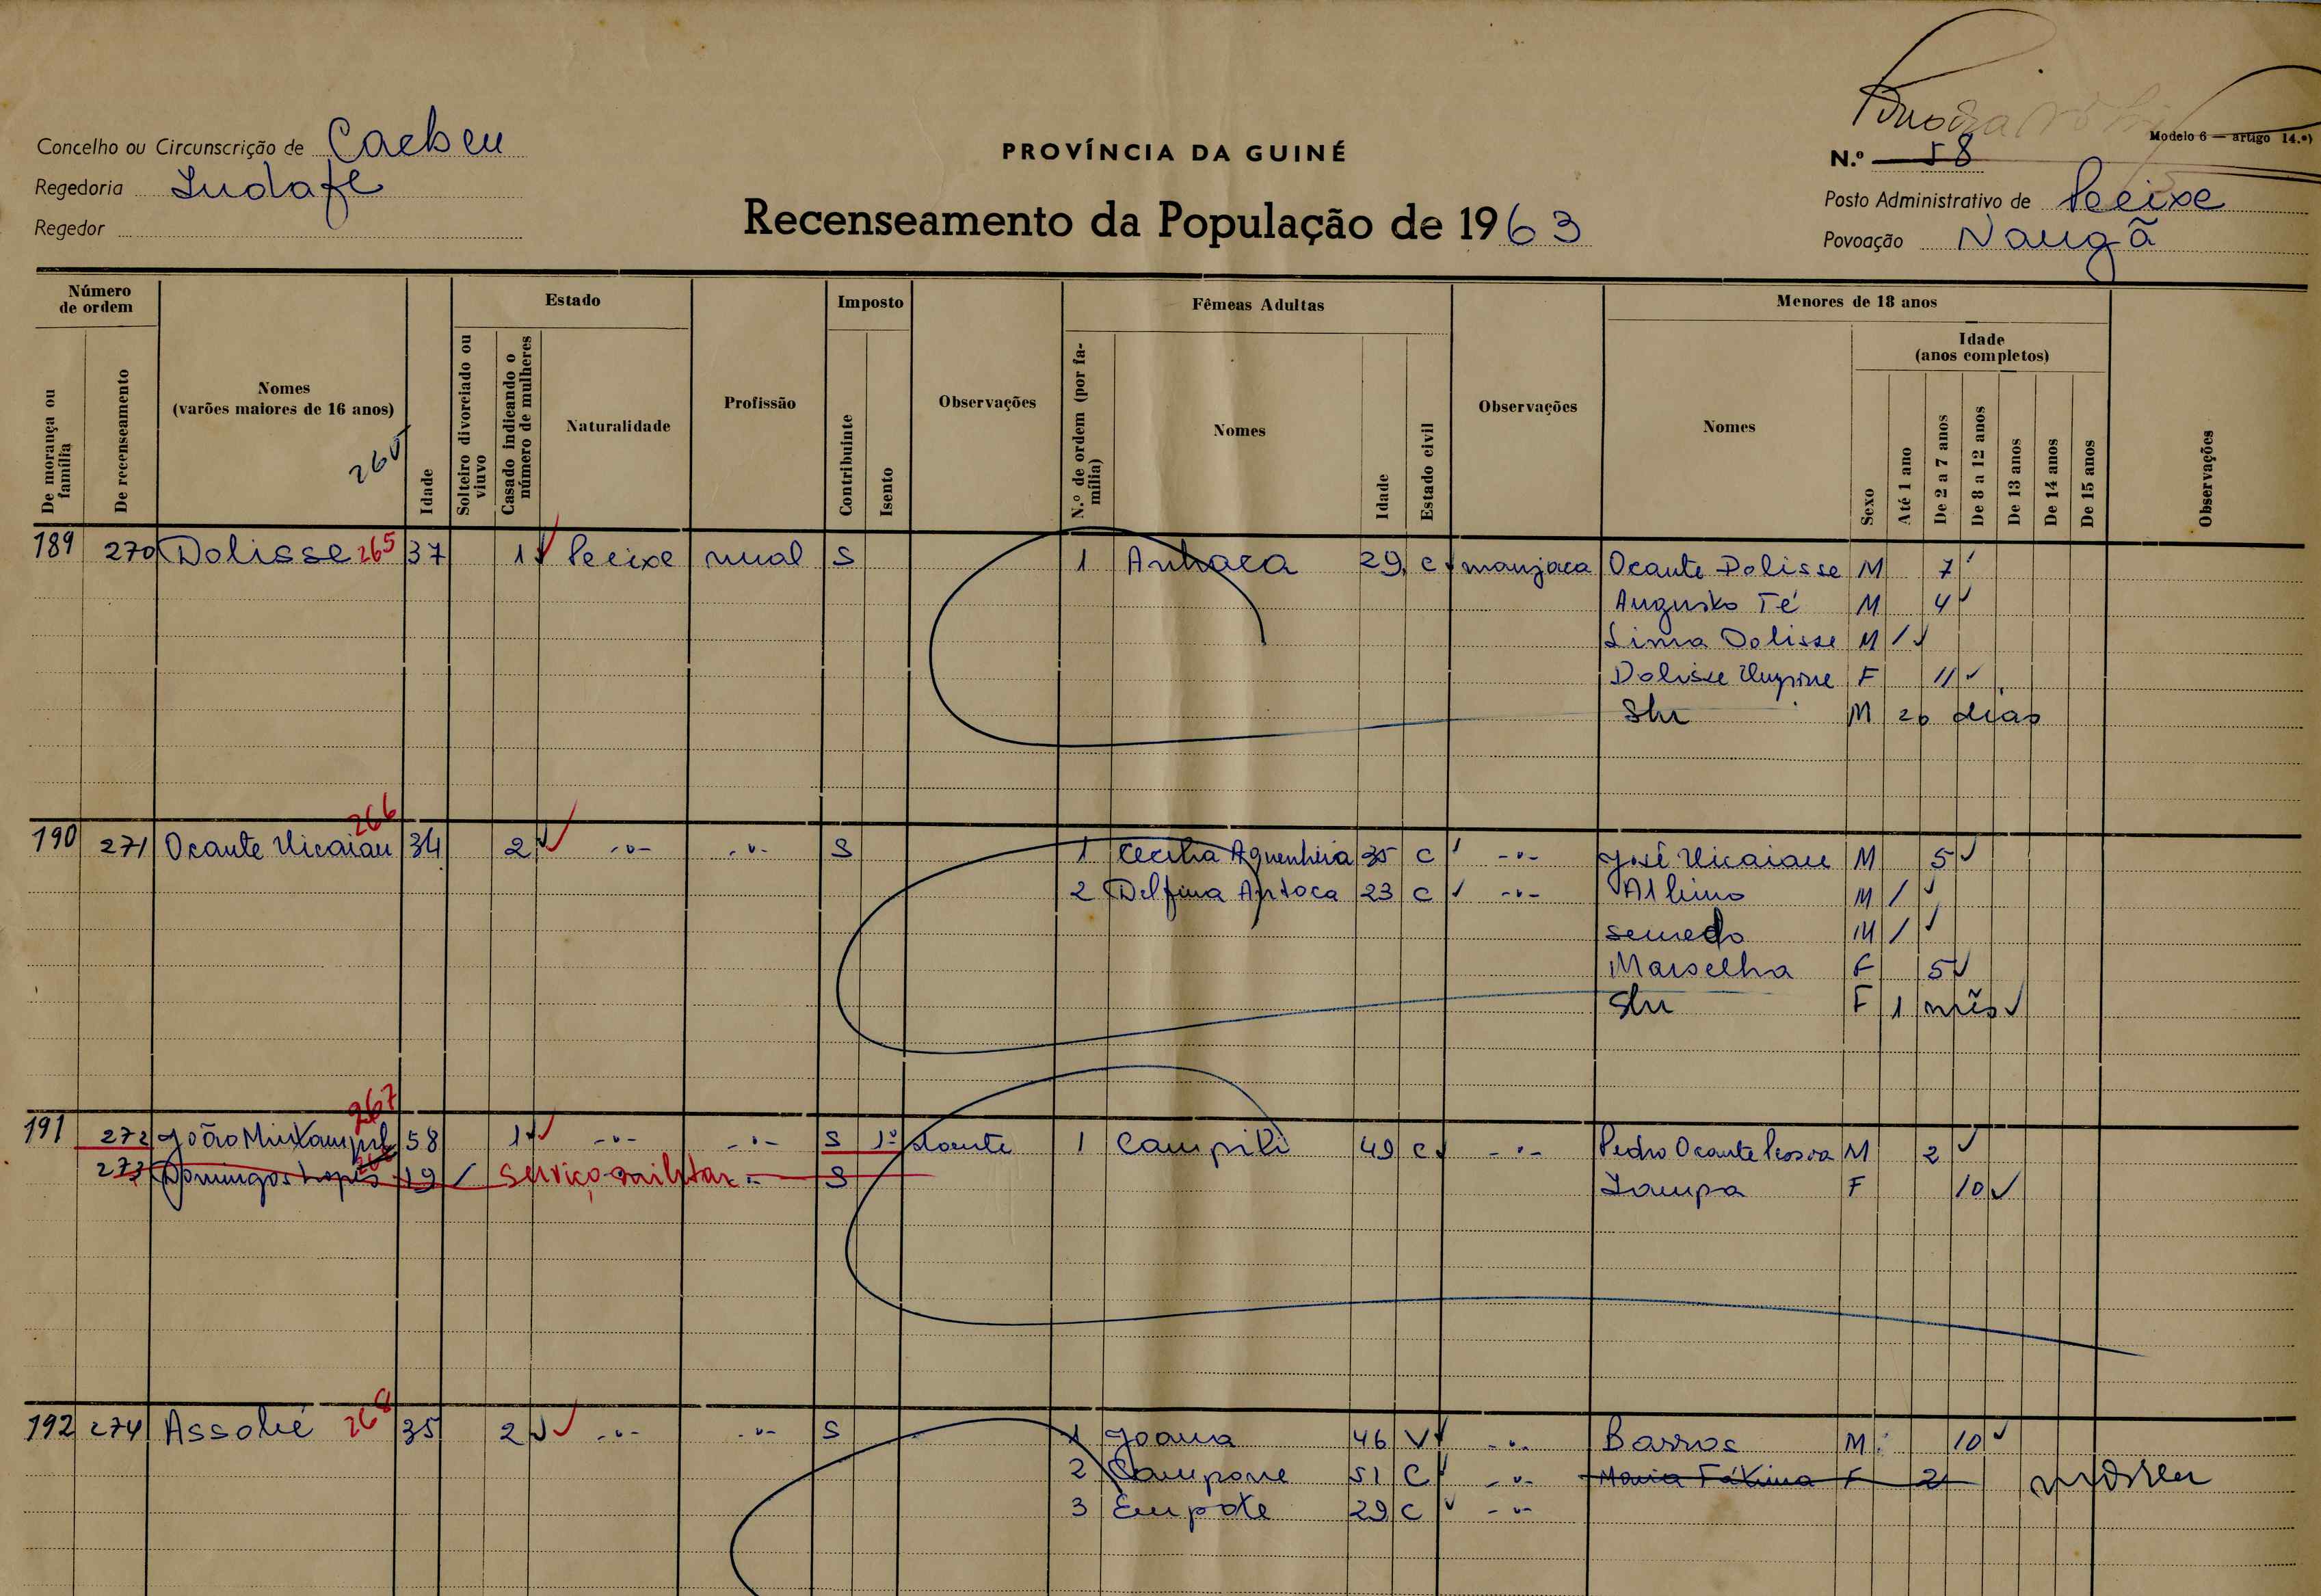 Modelo 6 — artigo 14.º)
Concelho ou Circunscrição de Caeheu
PROVÍNCIA DA GUINÉ
N.º 58
Regedoria Indafe
Recenseamento da População de 1963
Posto Administrativo de Pecixe
Regedor
Povoação Nangã
Número de ordem
Estado
Imposto
Fêmeas Adultas
Menores de 18 anos
Idade (anos completos)
De morança ou família
De recenseamento
Nomes (varões maiores de 16 anos)
265
Idade
Solteiro divorciado ou viuvo
Casado indicando o número de mulheres
Naturalidade
Profissão
Contribuinte
Isento
Observações
N.º de ordem (por família)
Nomes
Idade
Estado civil
Observações
Nomes
Sexo
Até 1 ano
De 2 a 7 anos
De 8 a 12 anos
De 13 anos
De 14 anos
De 15 anos
Observações
189 270 Dolisse 265 37 1 Pecixe rural S 1 29 C manjaca Ocante Dolisse M 7
Augusto Té M 4
Lima Dolisse M 1
Dolisse F 11
M 20 dias
266
190 271 Ocante Uicaiau 34 2 -"- -"- S 1 Cecilia Aguenheia 35 C -"- José Uicaiau M 5
2 Delfina Antoca 23 C -"- Albino M 1
Semedo M 1
Marselha F 5
F 1 mês
267
191 272 João 58 1 -"- -"- S 1º doente 1 Campili 49 C -"- Pedro Ocante Pessoa M 2
273 Domingos Lopes 19 serviço militar -"- S Iampa F 10
192 274 Assolié 268 35 2 -"- -"- S 1 Joana 46 V -"- Barros M 10
2 Campone 51 C -"- Maria Fátima F 2 morreu
3 Empote 29 C -"-